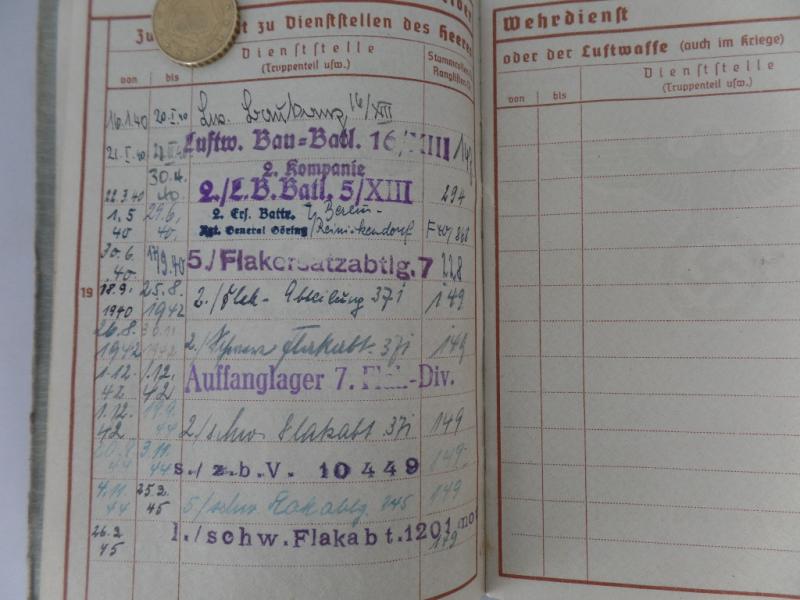 Zu
zu Dienststellen des Heeres
von
bis
Dienststelle
(Truppenteil usw.)
Stammrollen
Ranglisten
16.1.40 20.I.40 16/XIII
21.I.40 Luftw. Bau=Batl. 16/XIII 149
30.4. 2. Kompanie
22.3.40 40. 2./L.B.Batl. 5/XIII 294
1.5 29.6. 2. Ers. Battr. Berlin-
40 40. Rgt. General Göring /Reinickendorf
30.6. 17.9.40 5./Flakersatzabtlg.7 228
40.
19
18.9. 25.8. 2./Flak-Abteilung 371 149
1940 1942
26.8. 30.11
1942 1942 2./Schwere Flakabt. 371 149
1.12. Auffanglager 7. Flak-Div.
42 42
1.12.
42 44 2/schw Flakabt 371 149
3.11.
44 44 s./z.b.V. 10449 149
4.11. 25.2.
44 45 5/schw 149
26.2 1./schw.Flakabt.1201/mot
45 179
Wehrdienst
oder der Luftwaffe (auch im Kriege)
von
bis
Dienststelle
(Truppenteil usw.)